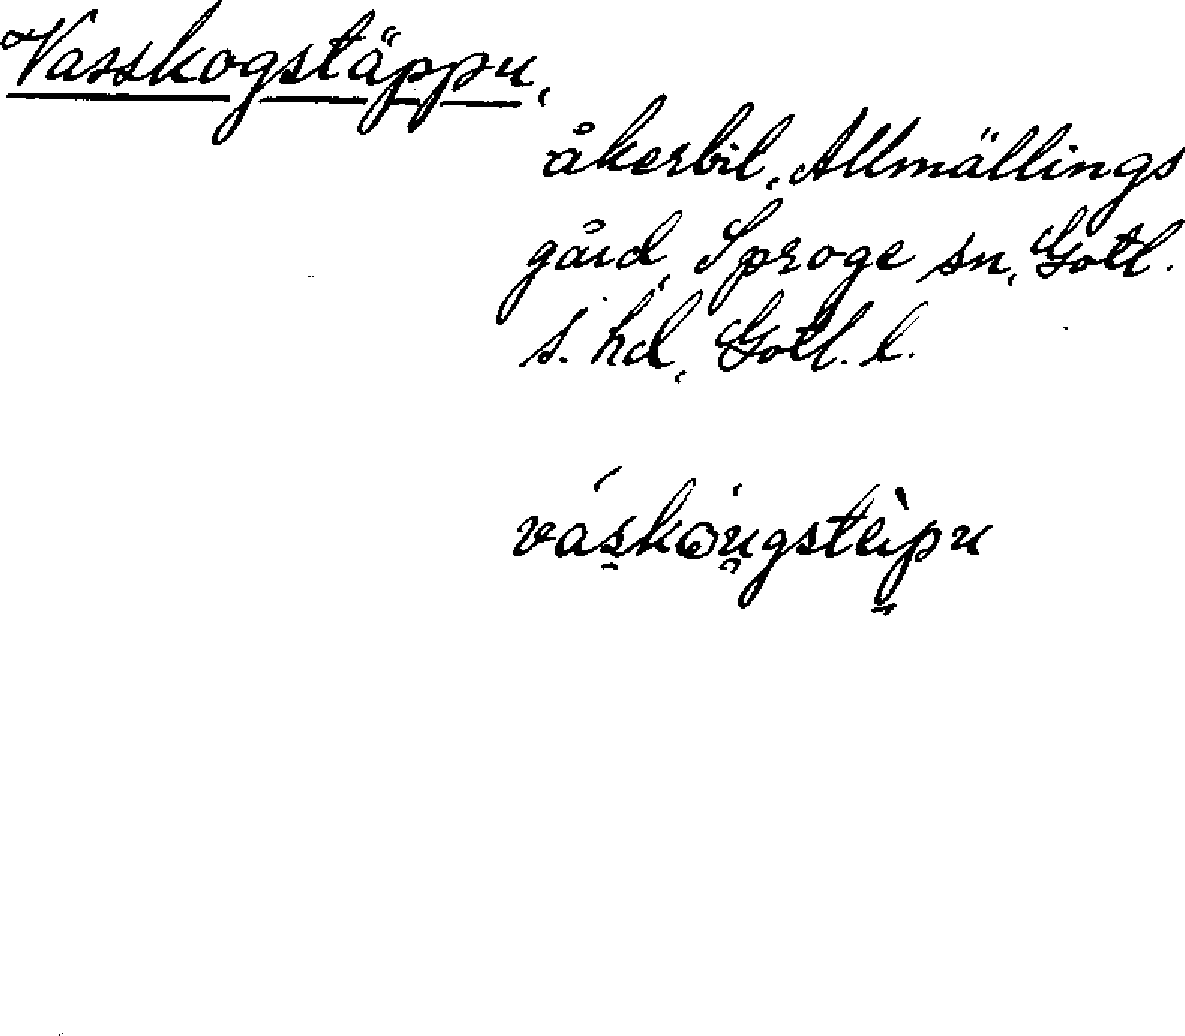 Vasskogstäppu,
åkerbil, Allmällings
gård, Sproge sn, Gotl.
s. hd, Gotl. l.
váskòugstèpu